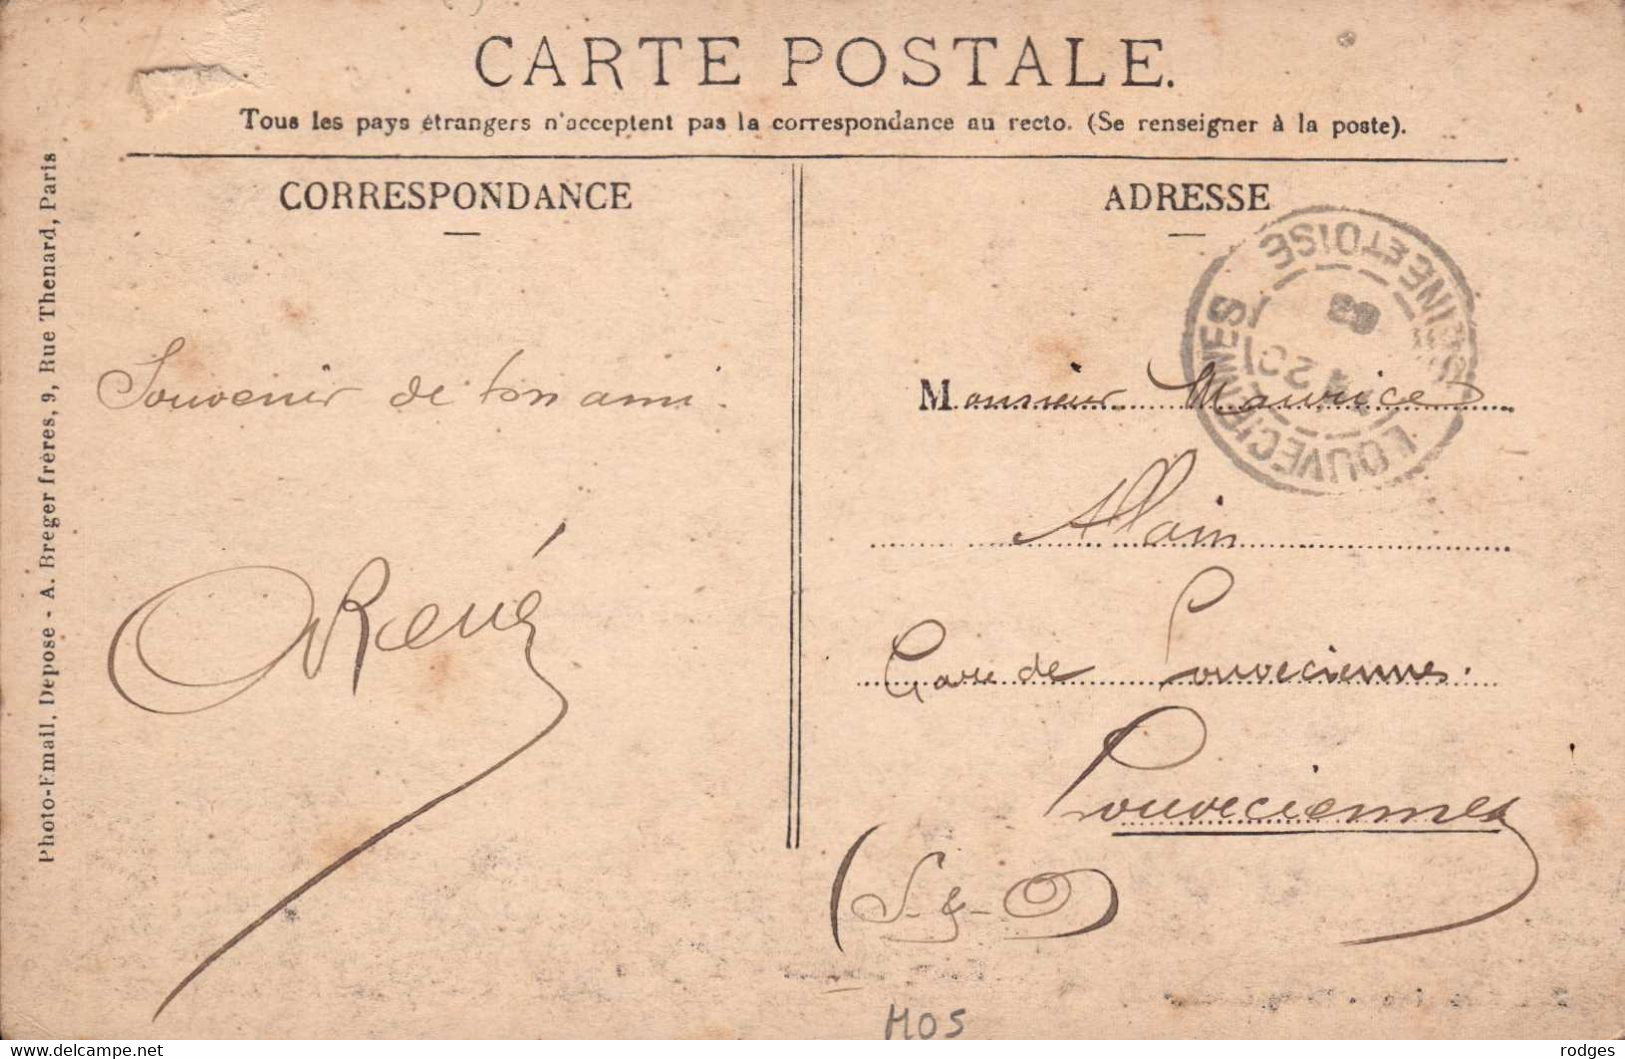 CARTE POSTALE.
Tous les pays étrangers n'acceptent pas la correspondance au recto. (Se renseigner à la poste).
Photo-Email, Depose - A. Breger frères, 9, Rue Thenard, Paris
CORRESPONDANCE
Souvenir de ton ami.
René
ADRESSE
LOUVECIENNES
SEINE ET OISE
Monsieur Maurice
Allain
Gare de Louveciennes.
Louveciennes
(S-&-O)
MOS
www.delcampe.net
rodges